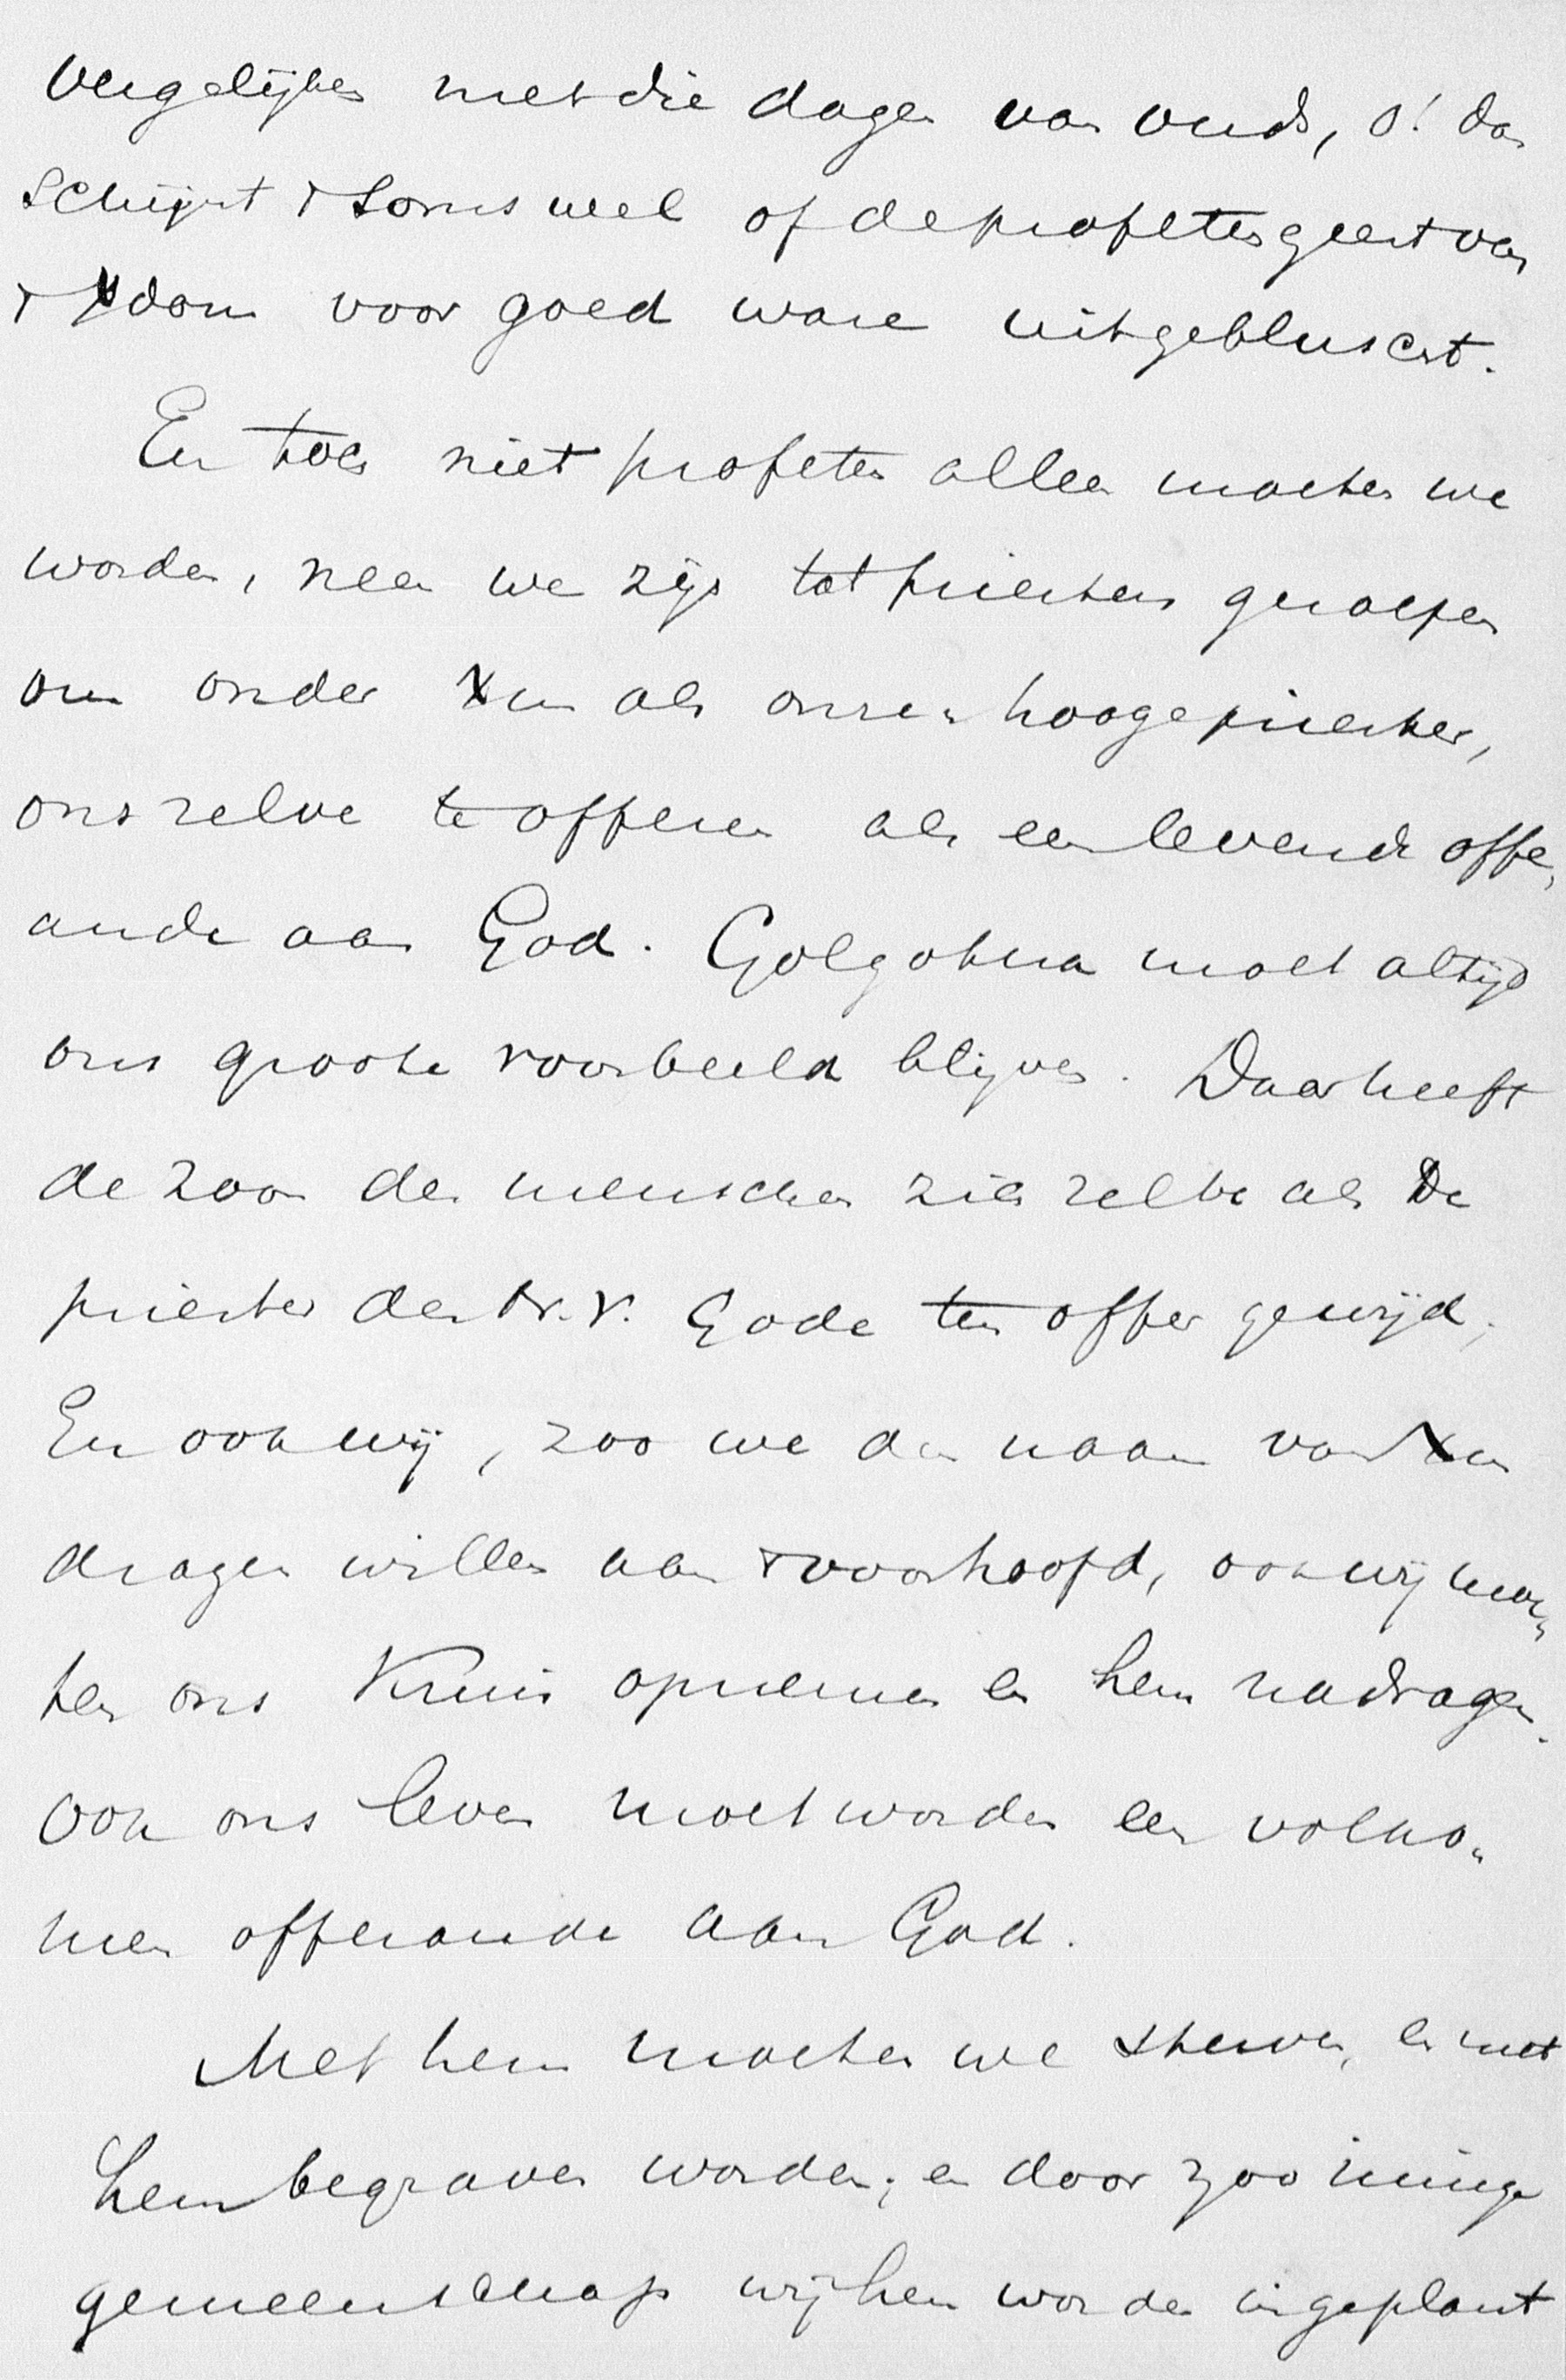 vergelijken met die dagen van ouds, o! dan
schijnt 't soms wel of de profetengeest van
't Xdom voor goed ware uitgebluscht.
En toch niet profeten alleen moeten we
worden, neen we zijn tot priesters geroepen
om onder Xus als onzen hoogepriester,
ons zelve te offeren als een levende offer,
ande aan God. Golgotha moet altijd
ons groote voorbeeld blijven. Daar heeft
de zoon des menschen zich zelve als De
priester des N.V. Gode ten offer gewijd;
En ook wij, zoo we den naam van Xus
dragen willen aan 't voorhoofd, ook wij moe,,
ten ons Kruis opnemen en hem nadragen.
Ook ons leven moet worden een volko,,
men offerande aan God.
Met hem moeten we sterven, en met
hem begraven worden; en door zoo innige
gemeenschap wij hem worden ingeplant